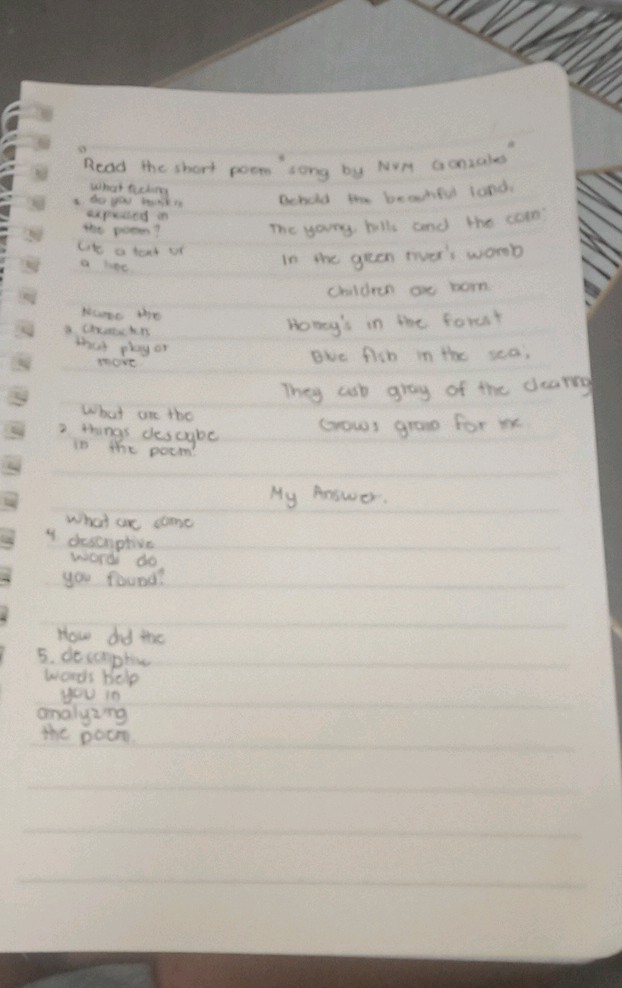 "Read the short poem "song by NVM Gonzales"
What feeling
1. do you think is
expressed in
the poem?
Cite a text or
a line.
Behold the beautiful land.
The young hills and the corn
In the green river's womb
Children are born
Name the
3. characters
that play or
move
Honey's in the forest
Blue fish in the sea;
They ash gray of the clearing
Grows grain for me.
What are the
2. things descrybe
in the poem?
My Answer.
What are some
4. descriptive
words do
you found?
How did the
5. descriptive
words help
you in
analyzing
the poem.